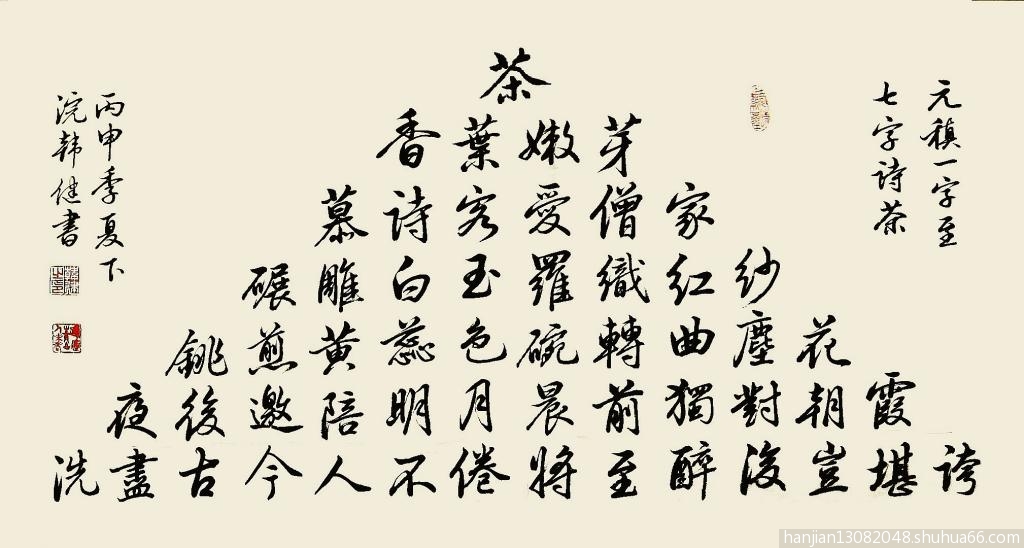 元稹一字至
七字詩茶
茶
香葉嫩芽
慕詩客愛僧家
碾雕白玉羅織紅紗
銚煎黄蕊色碗轉曲塵花
夜後邀陪明月晨前獨對朝霞
洗盡古今人不倦將至醉後豈堪誇
丙申季夏下
浣韩健書
hanjian13082048.shuhua66.com